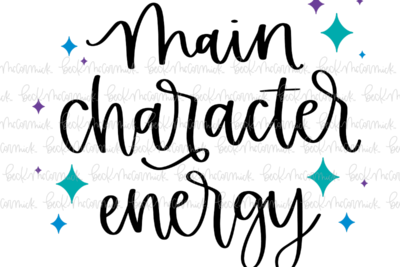 main
character
energy